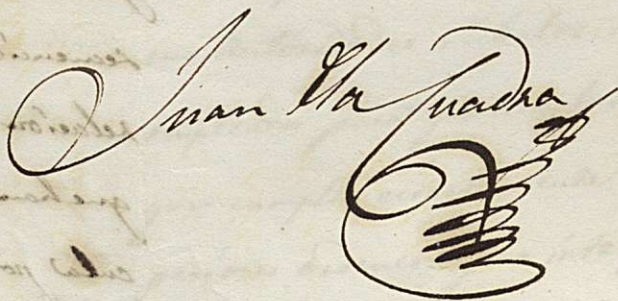 Juan dla Cuadra